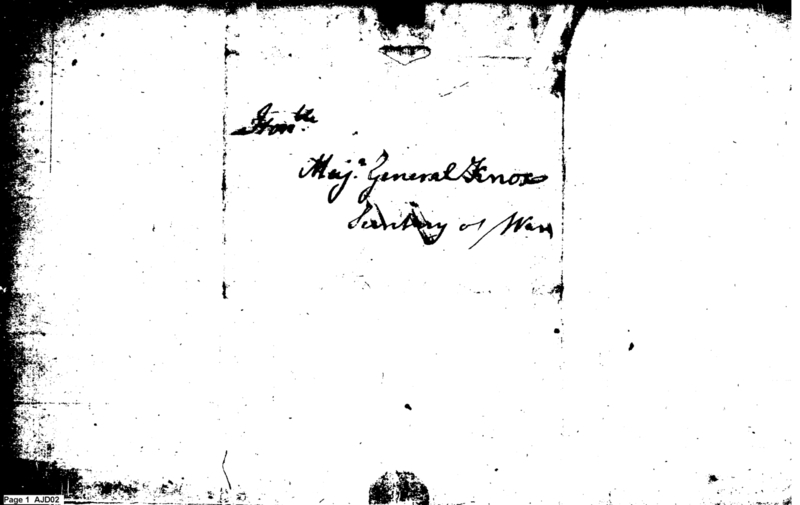 Hon.ble
Maj.r General Knox
Secretary of War
Page 1 AJD02